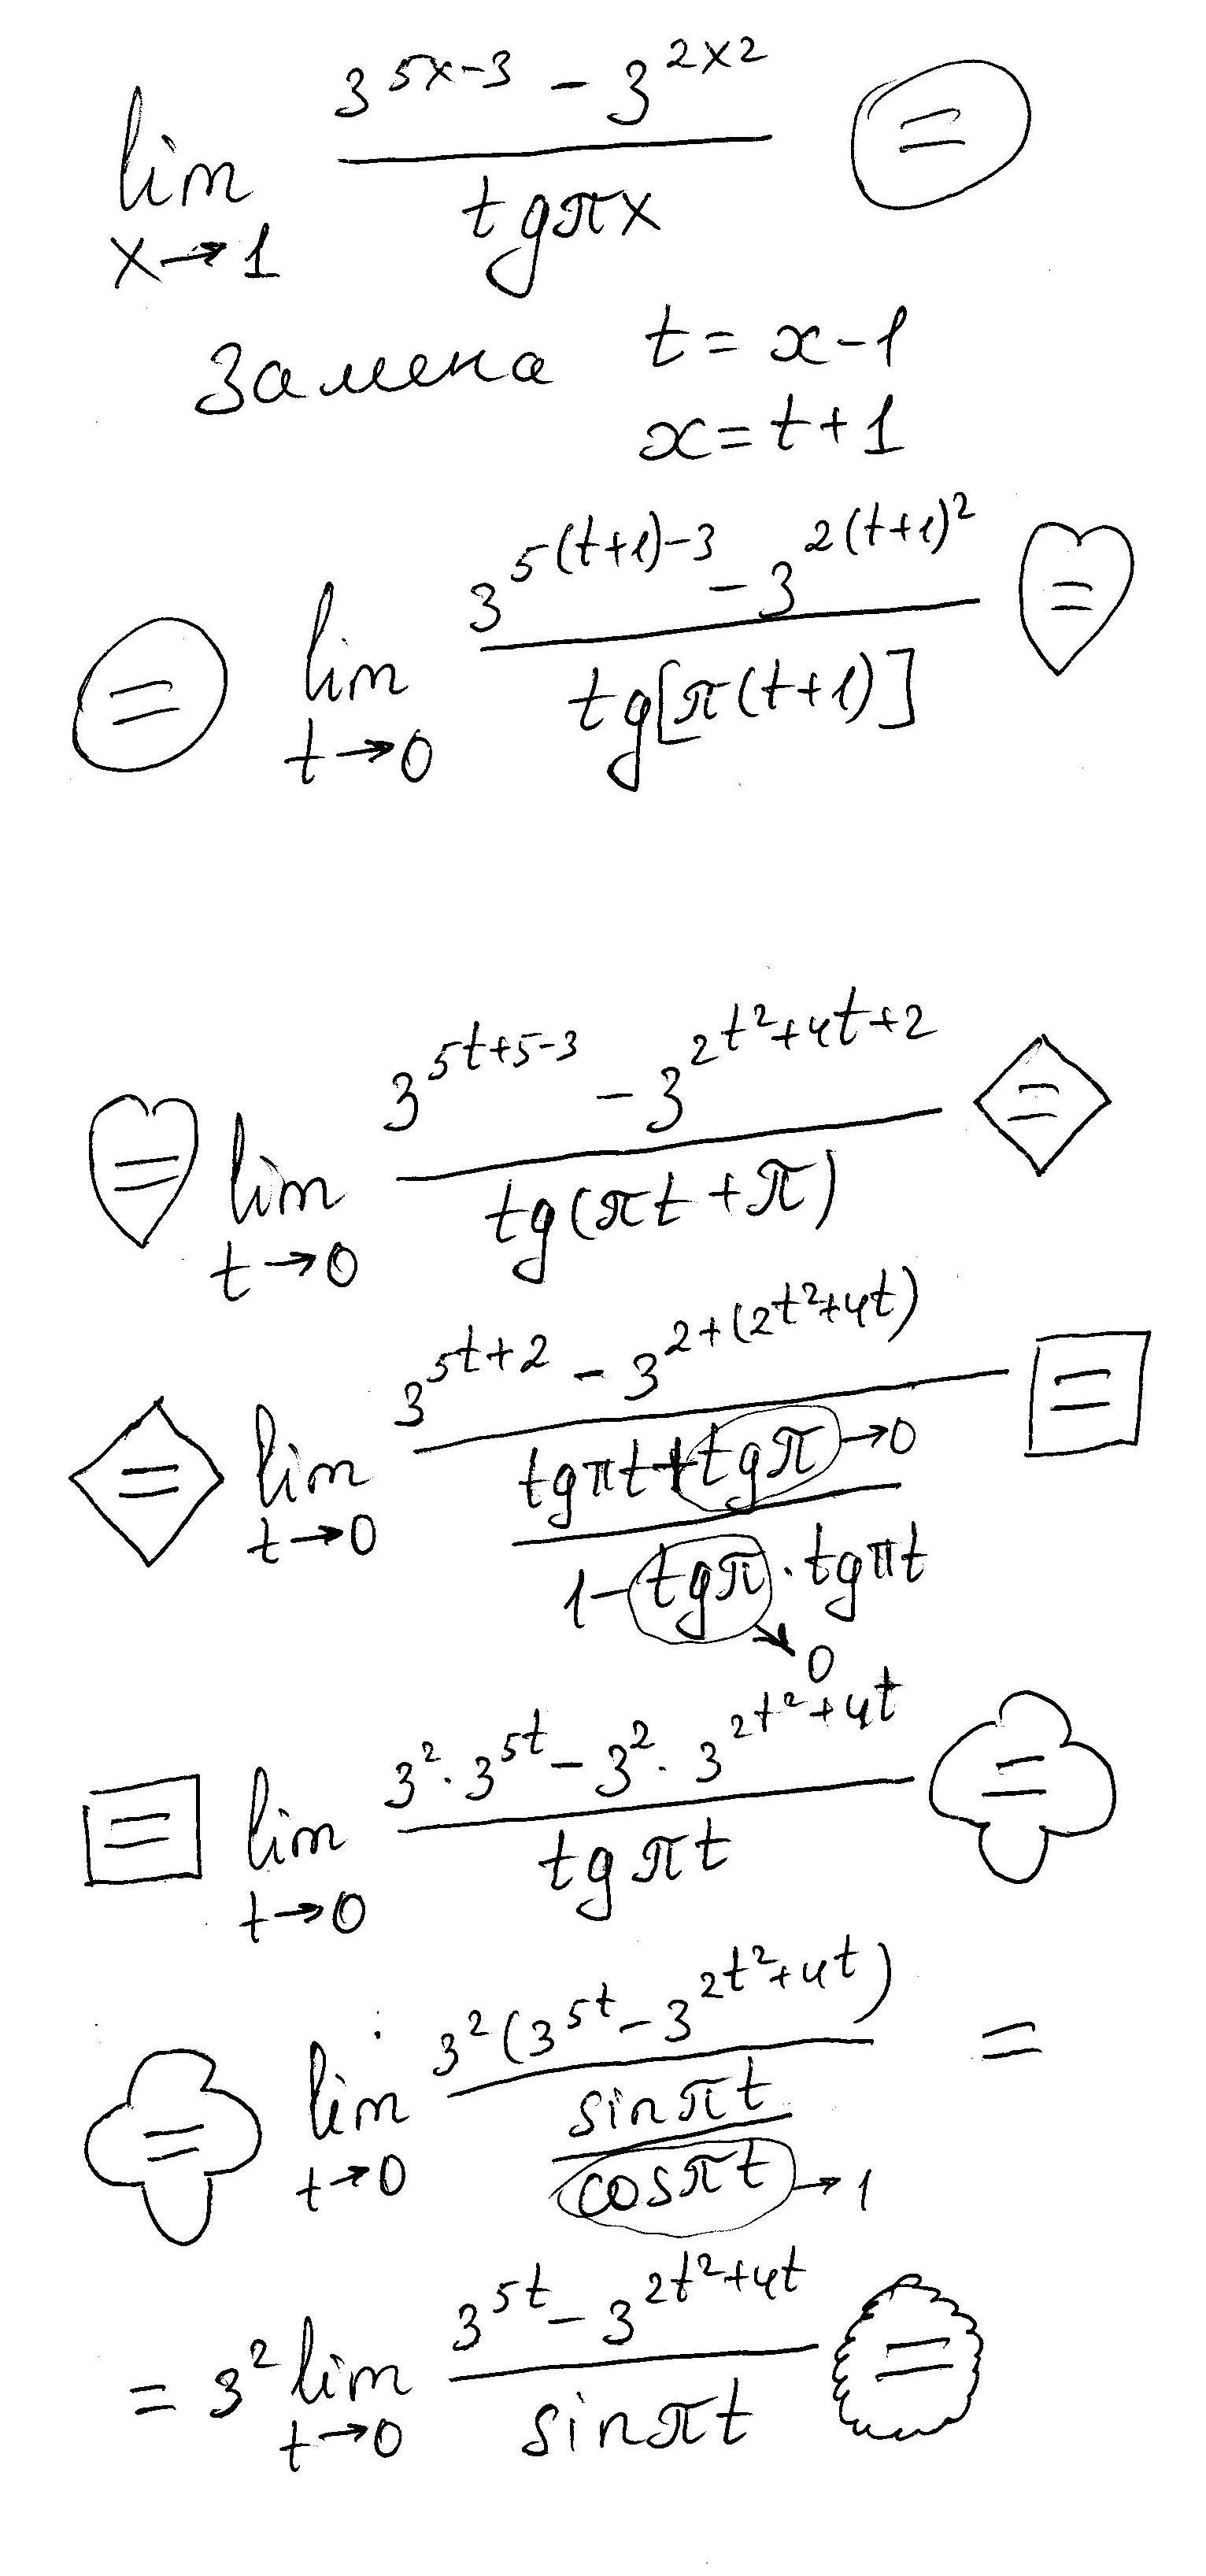 lim x→1 (3^(5x-3) - 3^(2x2)) / (tgπx) =
Замена t = x-1
x = t+1
= lim t→0 (3^(5(t+1)-3) - 3^(2(t+1)^2)) / (tg[π(t+1)]) =
= lim t→0 (3^(5t+5-3) - 3^(2t^2+4t+2)) / (tg(πt+π)) =
= lim t→0 (3^(5t+2) - 3^(2+(2t^2+4t))) / ((tgπt + tgπ →0) / (1 - tgπ · tgπt)) =
→0
= lim t→0 (3^2 · 3^(5t) - 3^2 · 3^(2t^2+4t)) / (tgπt) =
= lim t→0 (3^2(3^(5t) - 3^(2t^2+4t))) / (sinπt / cosπt →1) =
= 3^2 lim t→0 (3^(5t) - 3^(2t^2+4t)) / (sinπt) =